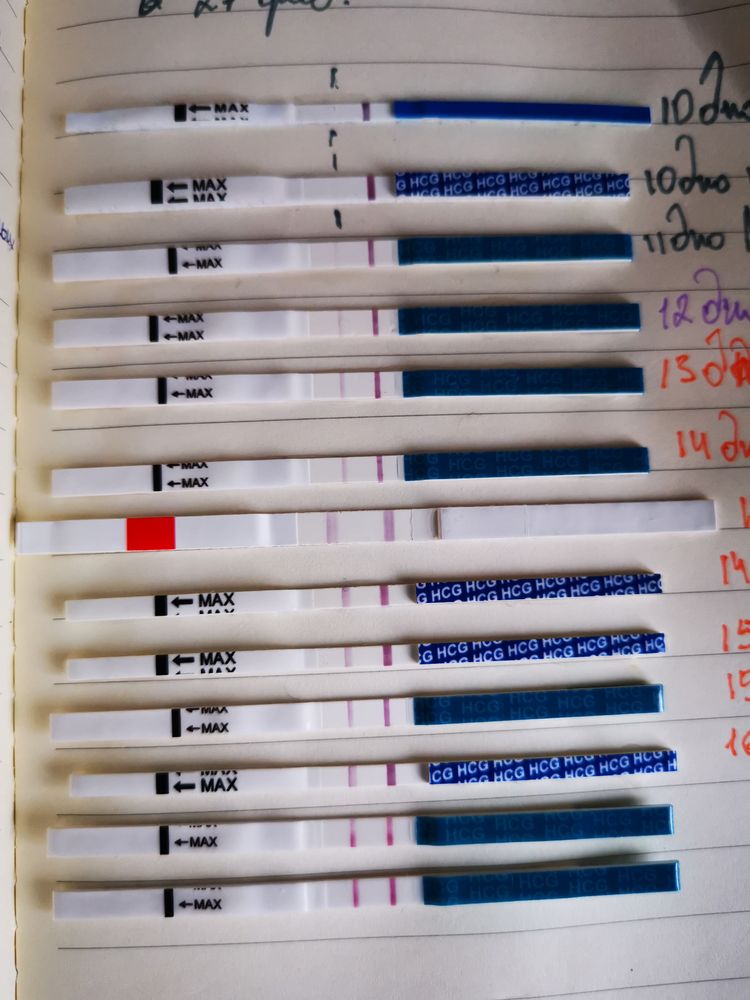 27
MAX 10 дпо
MAX HCG HCG HCG HCG HCG HCG HCG 10 дпо
MAX
MAX 11 дпо
MAX
MAX HCG HCG HCG HCG 12 дп
MAX
MAX HCG HCG HCG HCG 13 дп
MAX HCG HCG HCG HCG 14 дп
MAX
MAX HCG HCG HCG HCG HCG HCG HCG 14
MAX HCG HCG HCG HCG HCG HCG HCG 15
MAX HCG HCG HCG HCG 15
MAX
MAX
MAX HCG HCG HCG HCG HCG HCG HCG 16
MAX HCG HCG HCG HCG
MAX HCG HCG HCG HCG